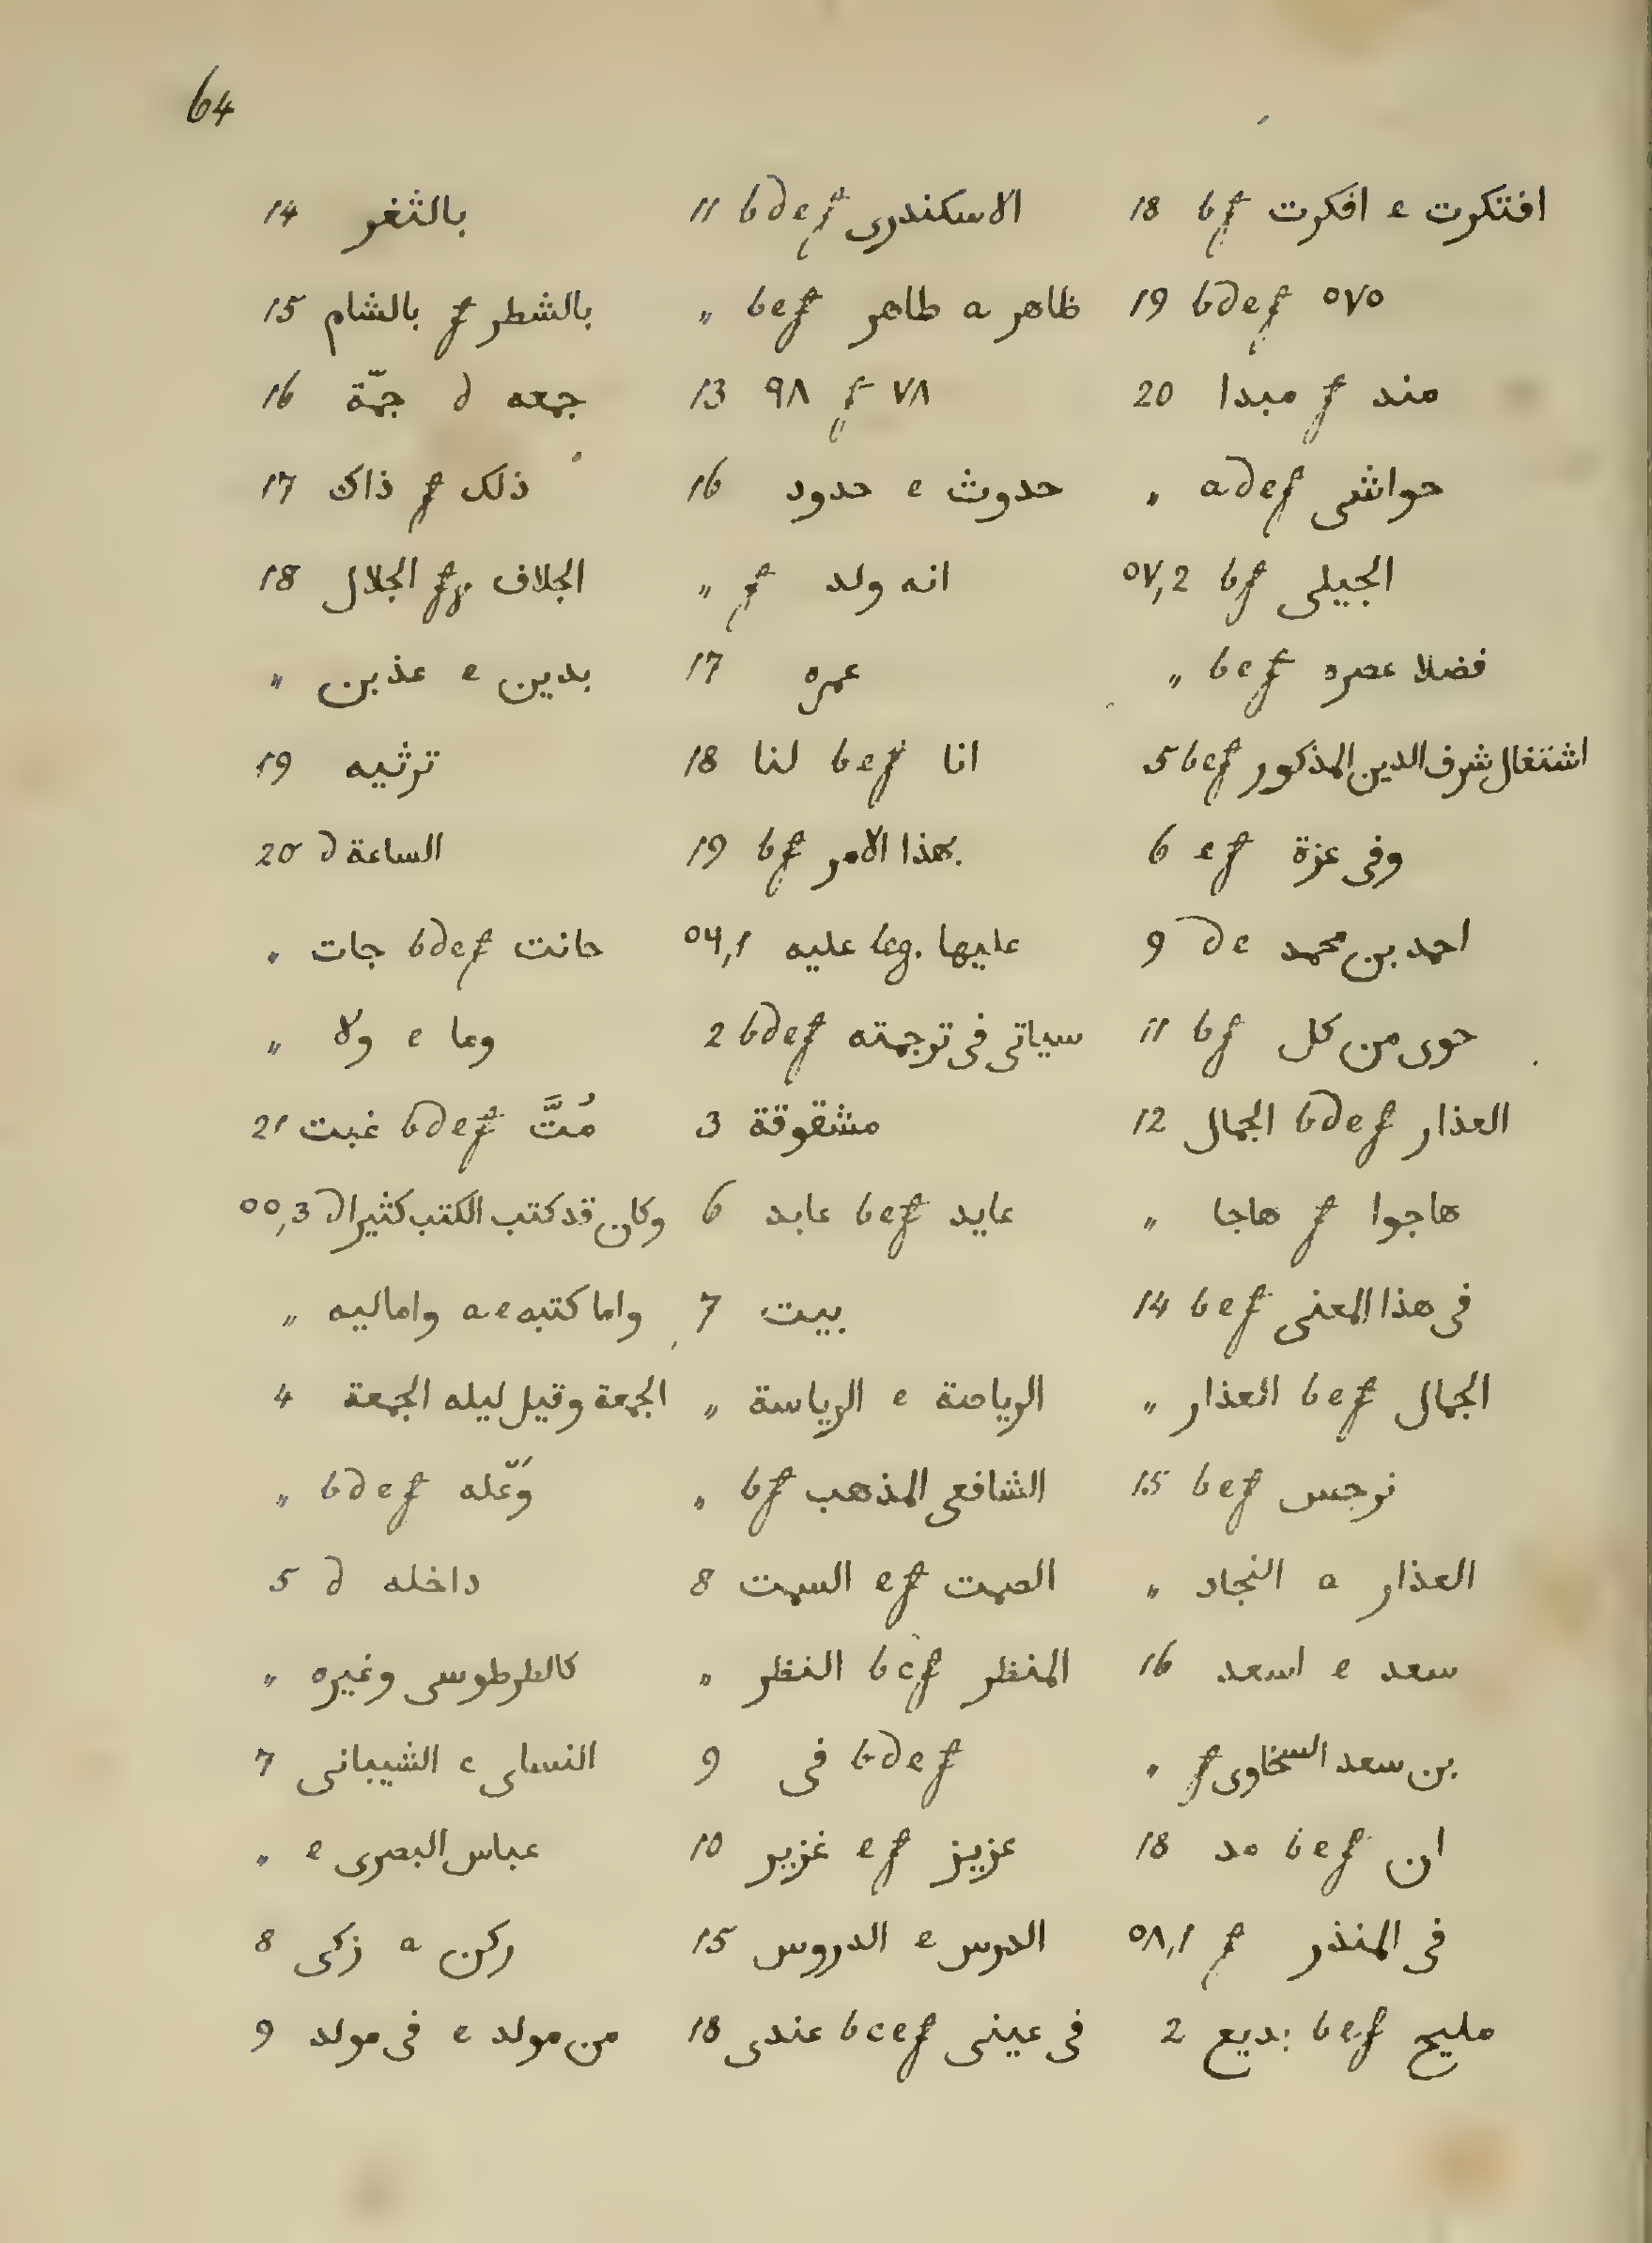 64
افتكرت e افكرت bf 18
٥٧٥ bdef 19
مند f مبدا 20
حواشى adef „
الجيلى bf ٥٧,2
فضلا عصره bef „
اشتغال شرف الدين المذكور bef 5
وفى عزة ef 6
احمد بن محمد de 9
حوى من كل bf 11
العذار bdef الجمال 12
هاجوا f هاجا „
فى هذا المعنى bef 14
الجمال bef العذار „
نرجس bef 15
العذار a النجاد „
سعد e اسعد 16
بن سعد السخاوى f „
ان bef مد 18
فى المنذر f ٥٨,1
مليح bef بديع 2
الاسكندرى bdef 11
ظاهر a طاهر bef „
٧٨ f ٩٨ 13
حدوث e حدود 16
انه ولد f „
عمره 17
انا bef لنا 18
بهذا الامر bf 19
عليها leg. عليه ٥٤,1
سياتى فى ترجمته bdef 2
مشقوقة 3
عايد bef عابد 6
بيت 7
الرياضة e الرياسة „
الشافعى المذهب bf „
الصمت ef السمت 8
المنظر bef النظر „
bdef فى 9
عزيز ef غزير 10
الدرس e الدروس 15
فى عينى bcef عندى 18
بالثغر 14
بالشطر f بالشام 15
جمعه d جمّة 16
ذلك f ذاك 17
الجلاف fg الجلال 18
بدين e عذبن „
ترثيه 19
الساعة d 20
حانت bdef جات „
وما e ولا „
مُتَّ bdef غبت 21
وكان قد كتب الكتب كثيرا d ٥٥,3
واما كتبه a.e واماليه „
الجمعة وقيل ليله الجمعة 4
وَعّله bdef „
داخله d 5
كالطرطوسى وغيره „
النساى e الشيبانى 7
عباس البصرى e „
ركن a زكى 8
من مولد e فى مولد 9